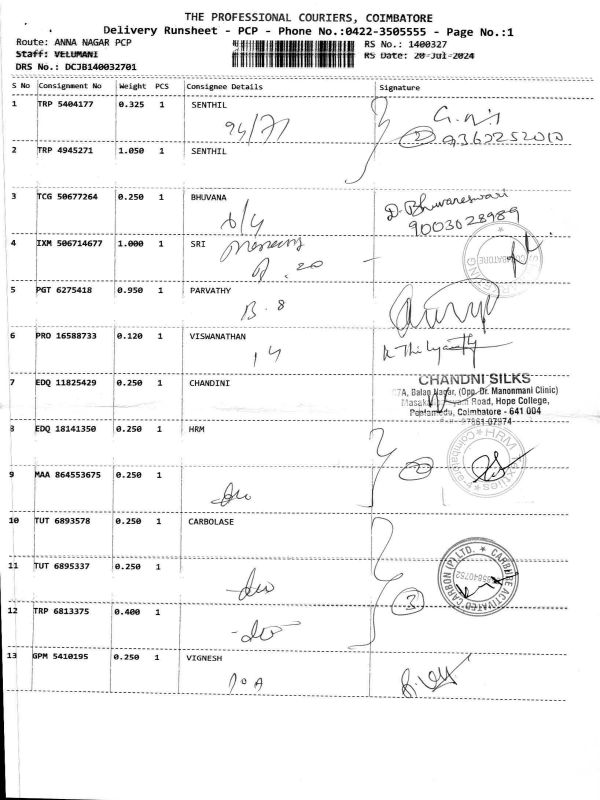 THE PROFESSIONAL COURIERS, COIMBATORE
Delivery Runsheet - PCP - Phone No.:0422-3505555 - Page No.:1
Route: ANNA NAGAR PCP
RS No.: 1400327
Staff: VELUMANI
RS Date: 20-Jul-2024
DRS No.: DCJB140032701
S No Consignment No Weight PCS Consignee Details Signature
1 TRP 5404177 0.325 1 SENTHIL
94/77
2 9362252010
2 TRP 4945271 1.050 1 SENTHIL
3 TCG 50677264 0.250 1 BHUVANA
D. Bhuvaneswari
9003028989
4 IXM 506714677 1.000 1 SRI
20
COIMBATORE
5 PGT 6275418 0.950 1 PARVATHY
B. 8
6 PRO 16588733 0.120 1 VISWANATHAN
14
7 EDQ 11825429 0.250 1 CHANDINI
CHANDNI SILKS
7A, Balan Nagar, (Opp. Dr. Manonmani Clinic)
Road, Hope College,
Coimbatore - 641 004
8 EDQ 18141350 0.250 1 HRM
2
HRM
9 MAA 864553675 0.250 1
10 TUT 6893578 0.250 1 CARBOLASE
11 TUT 6895337 0.250 1
CARBON (P) LTD. * CARBUBE ACTIVATED
12 TRP 6813375 0.400 1
3
13 GPM 5410195 0.250 1 VIGNESH